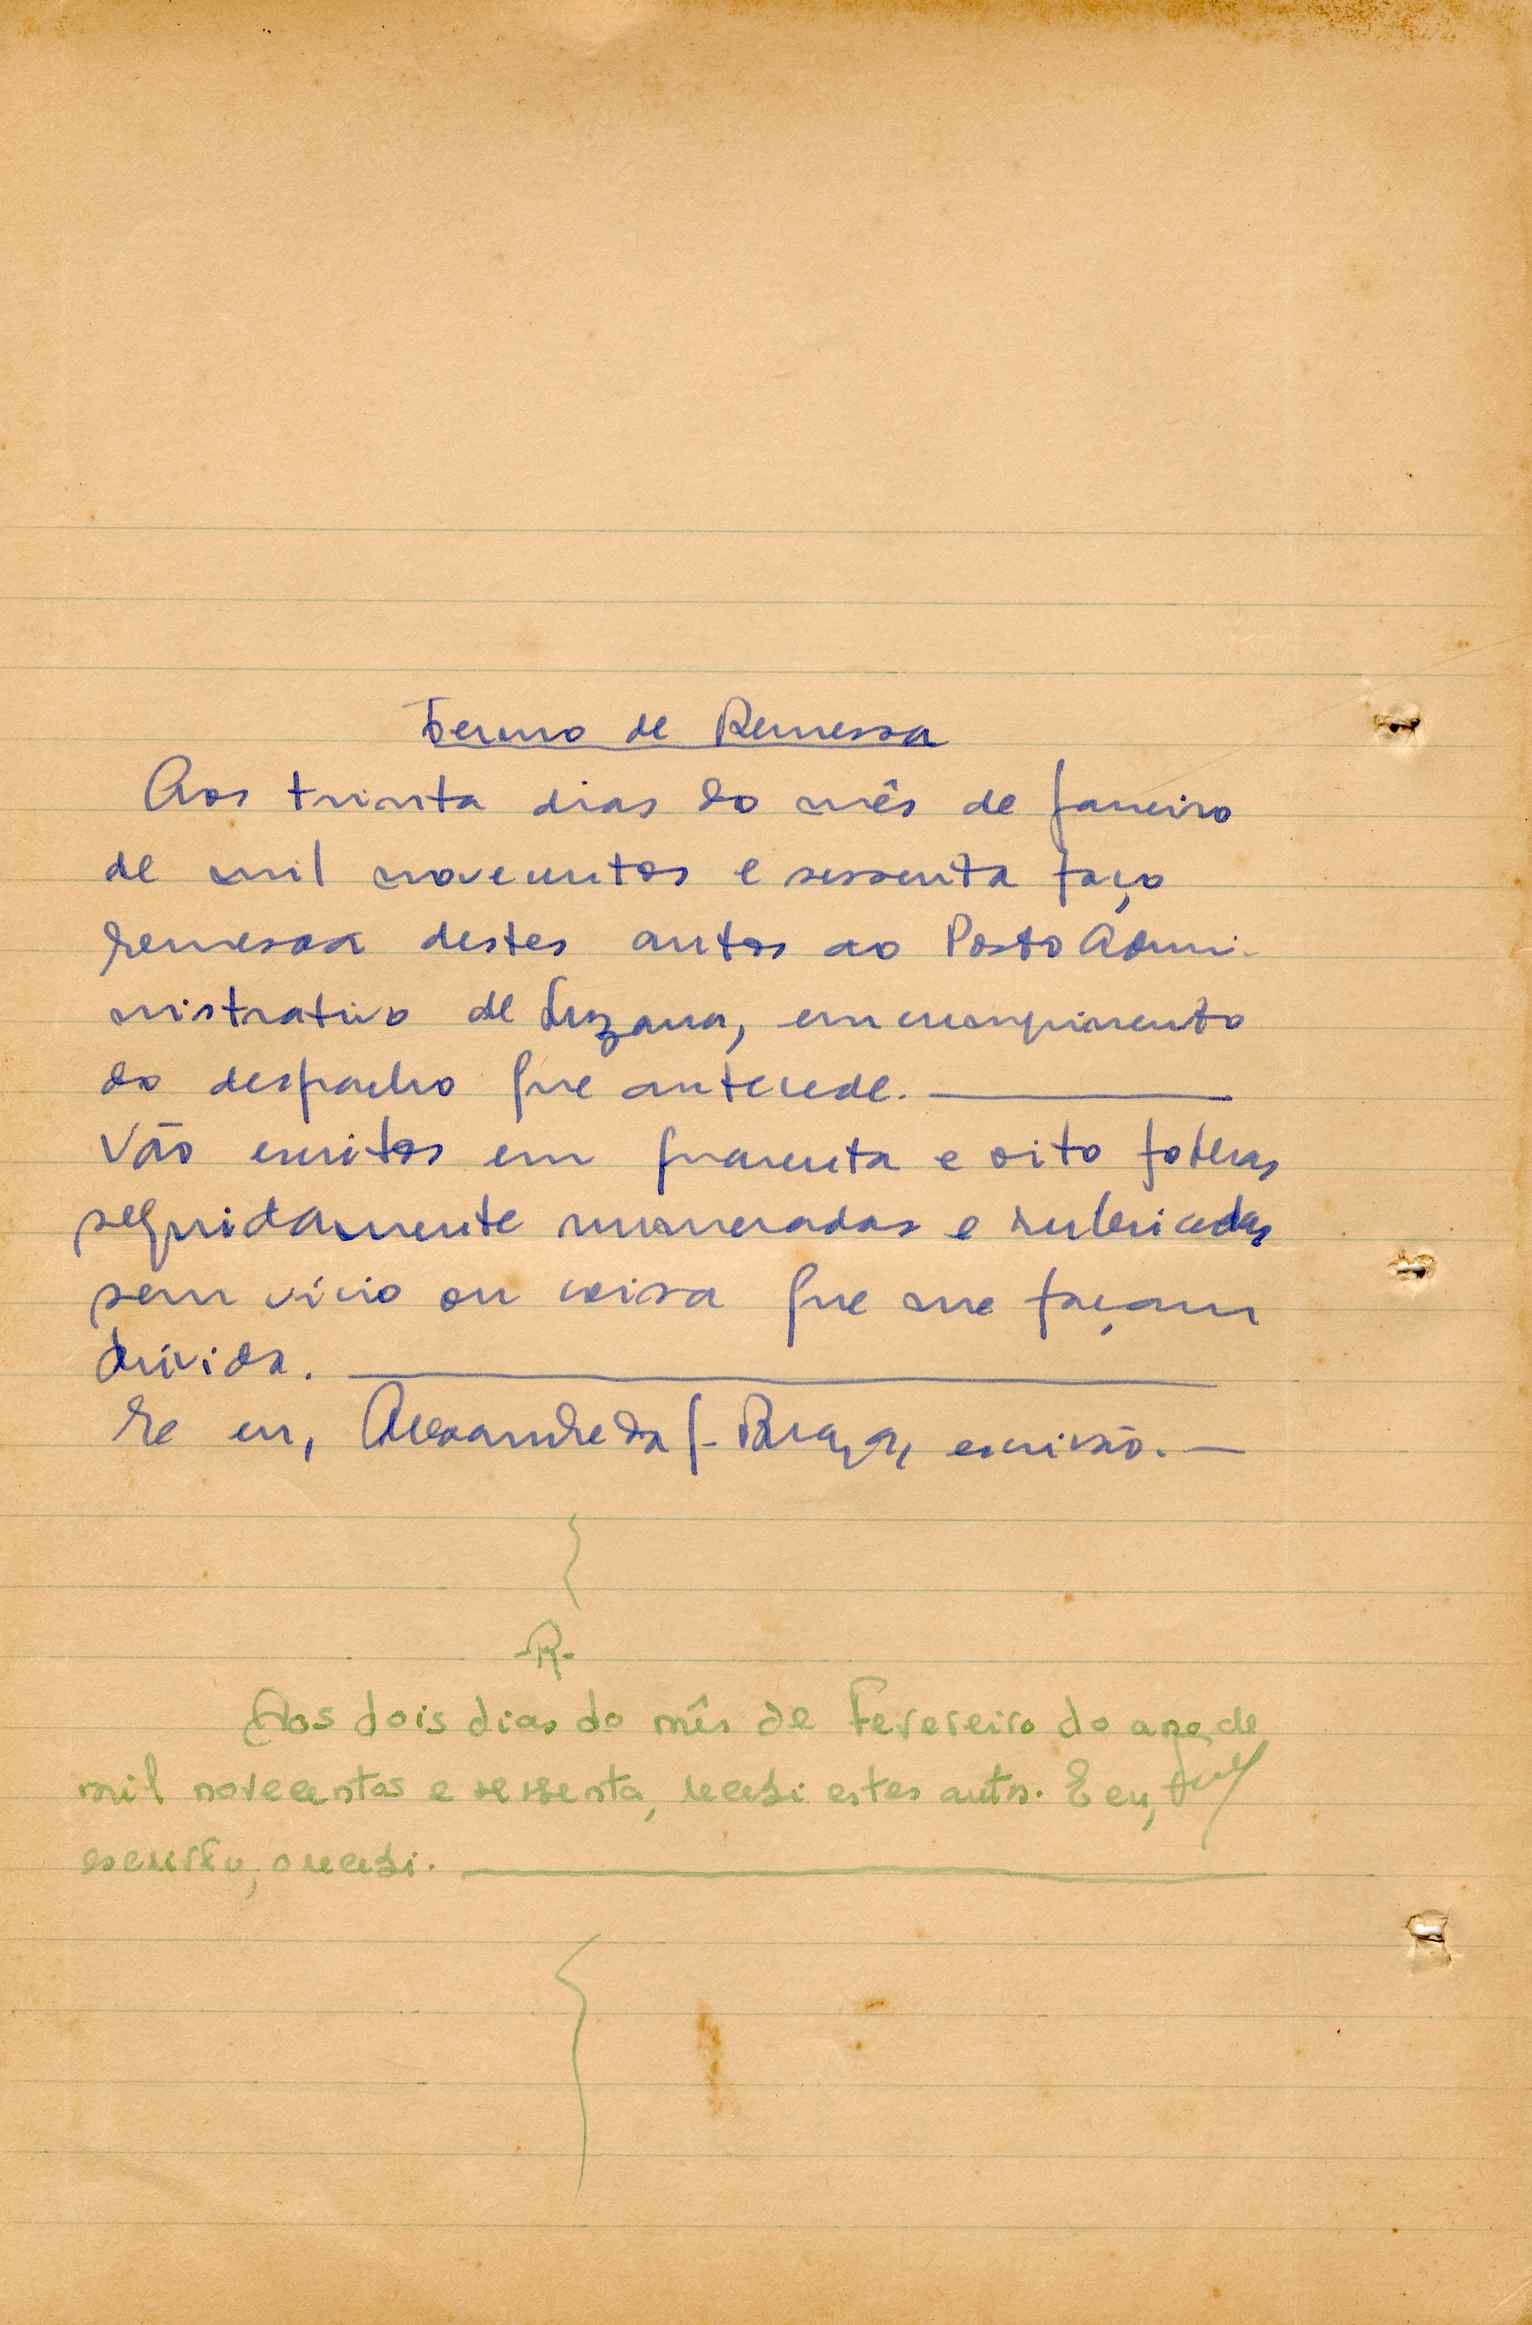 Termo de Remessa
Aos trinta dias do mês de Janeiro
de mil novecentos e sessenta faço
remessa destes autos ao Posto Admi-
nistrativo de Luzana, em cumprimento
do despacho que antecede.
Vão escritos em quarenta e oito folhas
seguidamente numeradas e rubricadas
sem vício ou coisa que me façam
dúvida.
E eu, Alexandre da J. Braga, escrivão.
-R-
Aos dois dias do mês de Fevereiro do ano de
mil novecentos e sessenta, recebi estes autos. E eu,
escrivão, o recebi.